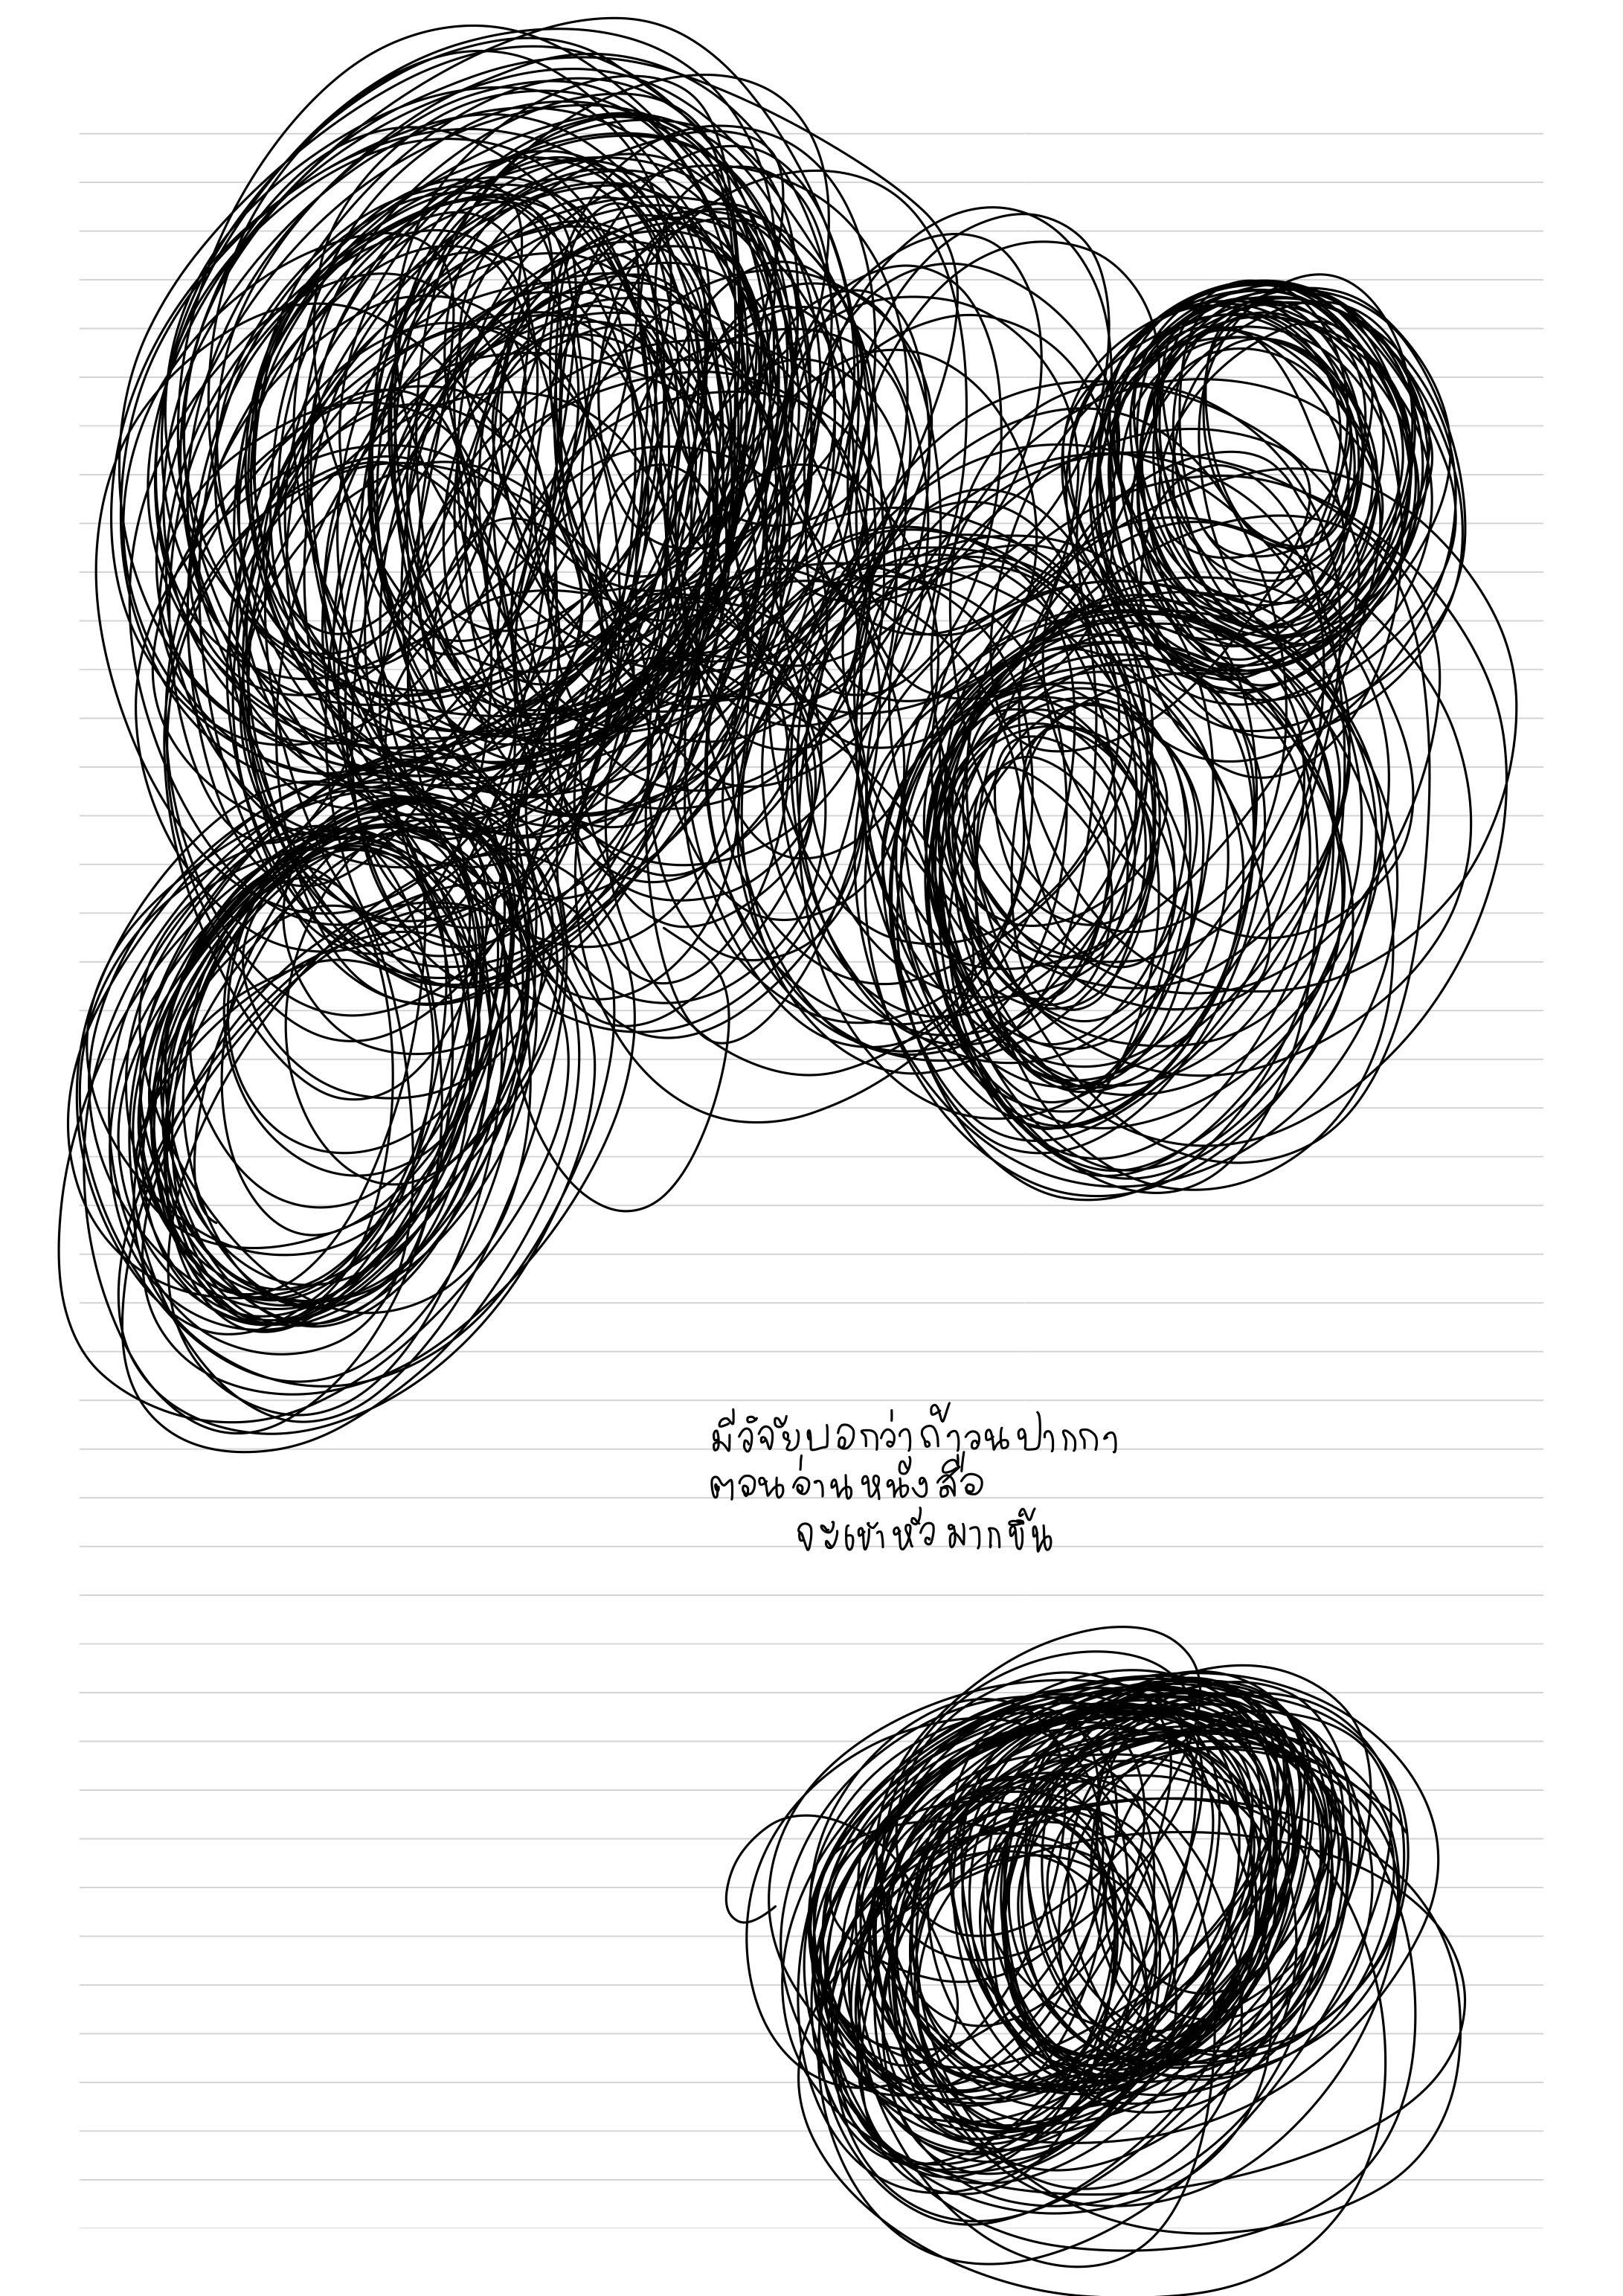 มีวิจัยบอกว่าถ้าวนปากกา
ตอนอ่านหนังสือ
จะเข้าหัวมากขึ้น